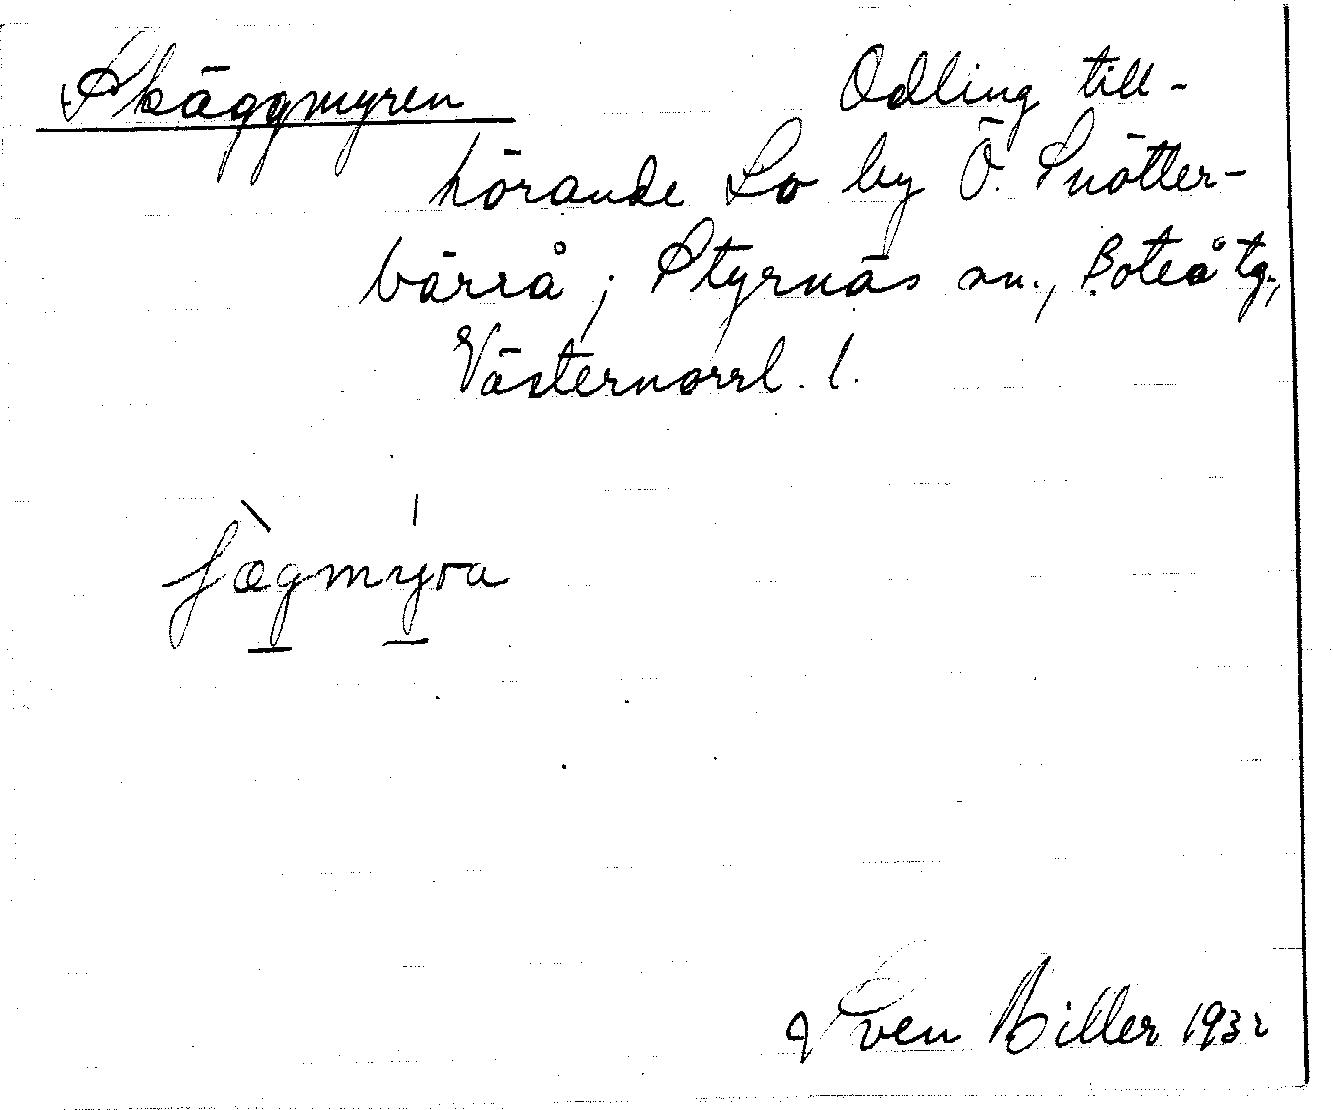 Skäggmyren Odling till-
hörande Lo by Ö. Snötter-
bärrå; Styrnäs sn., Boteå tg.,
Västernorrl. l.
ʃægmyra
Sven Hiller 1932